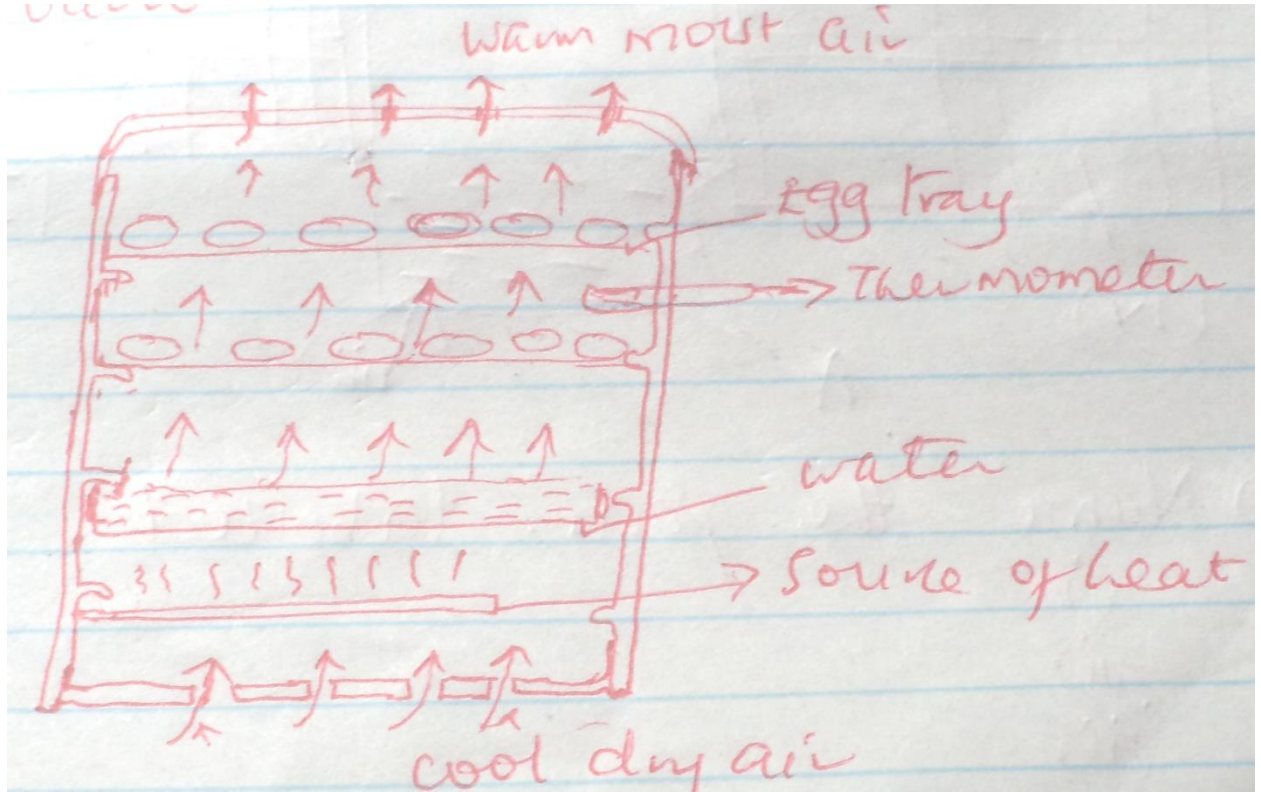 Warm moist air
Egg tray
Thermometer
water
Source of heat
cool dry air